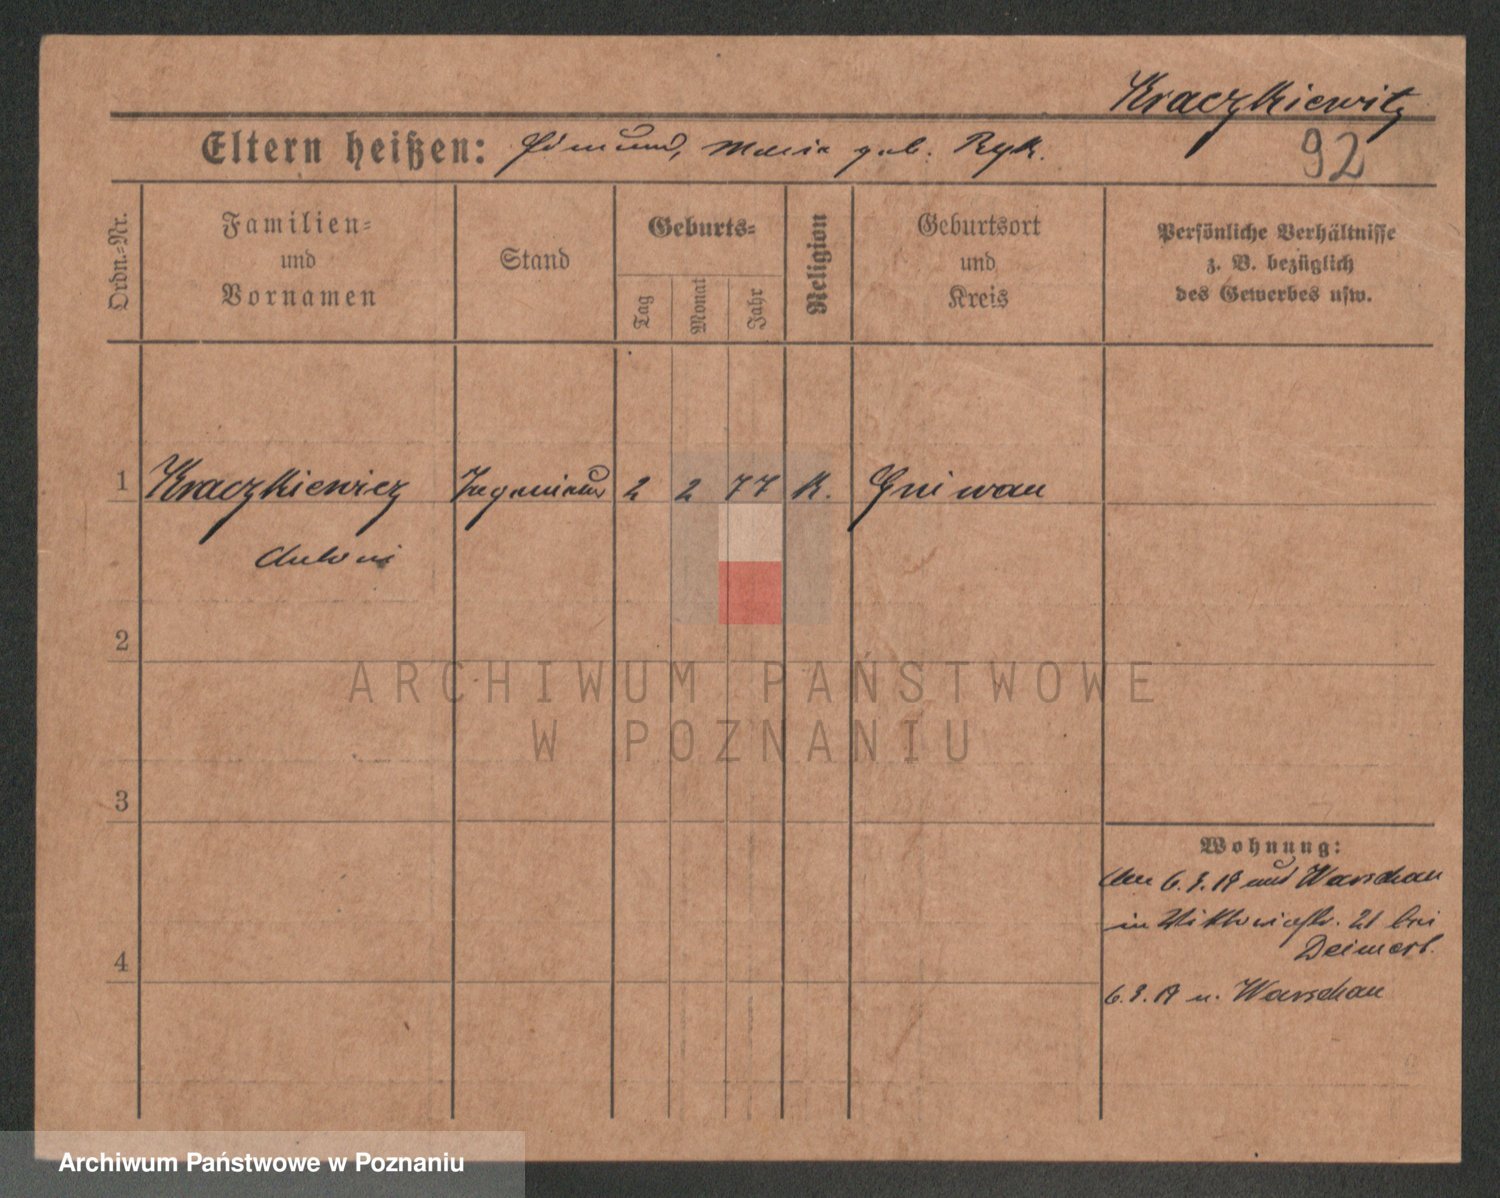 Kraczkiewitz
Eltern heißen: Edmund, Maria geb. Ryk.
92
Ordn.-Nr.
Familien-
und
Vornamen
Stand
Geburts-
Tag
Monat
Jahr
Religion
Geburtsort
und
Kreis
Persönliche Verhältnisse
z. B. bezüglich
des Gewerbes usw.
1 Kraczkiewicz Ingenieur 2 2 77 K. Gniwan
Antoni
2
3
4
Wohnung:
Am 6.9.19 aus Warschau
in Viktoriastr. 21 bei
6.9.19 n. Warschau
ARCHIWUM PAŃSTWOWE
W POZNANIU
Archiwum Państwowe w Poznaniu